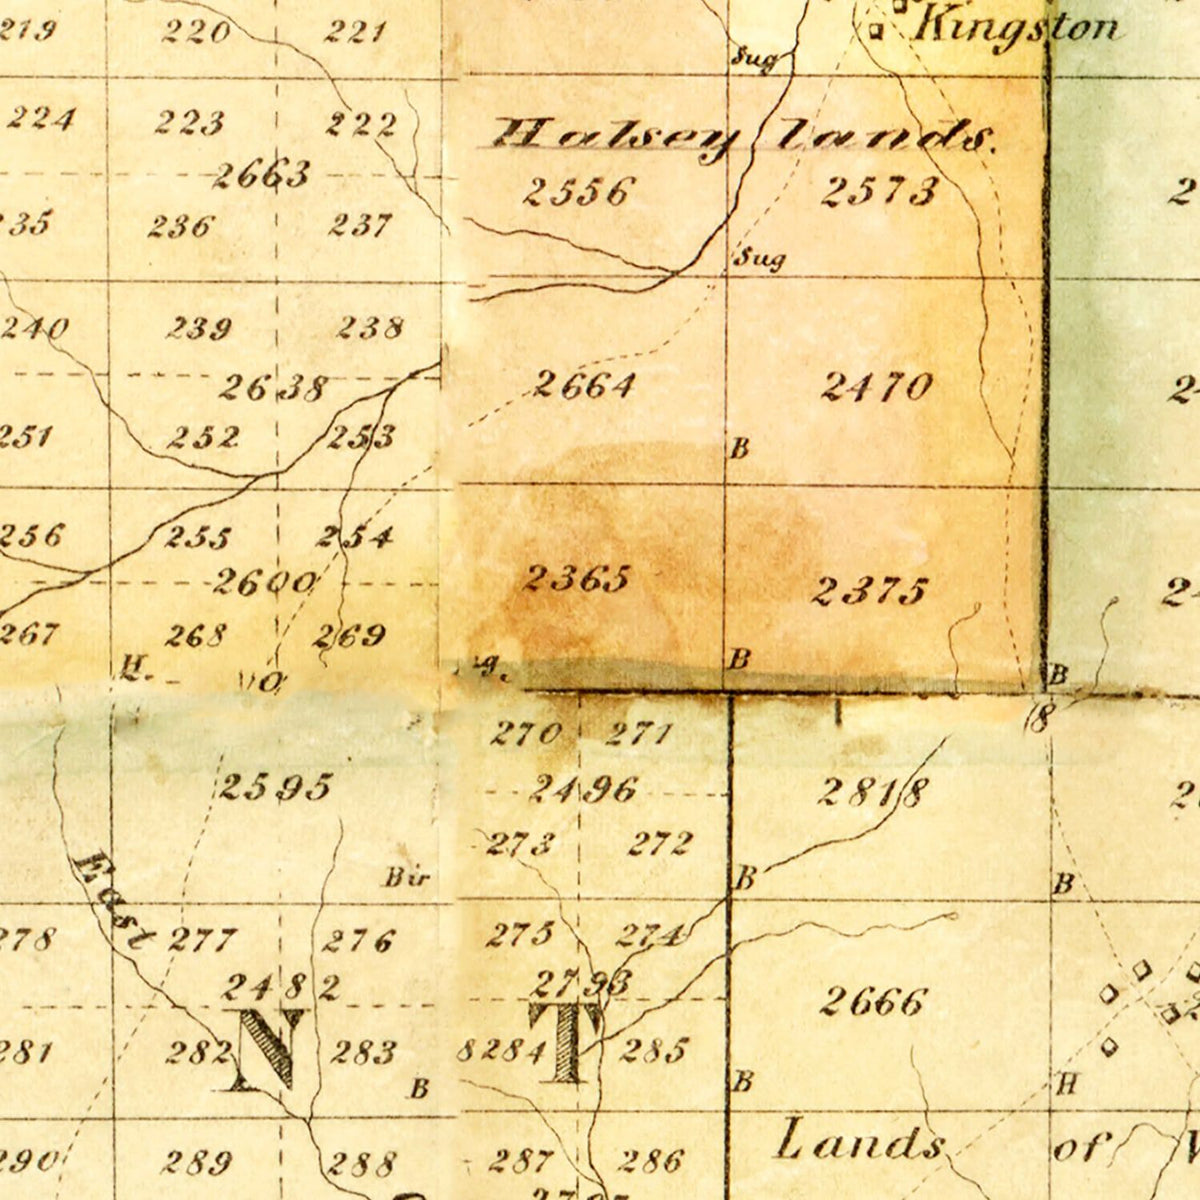 219 220 221 Kingston
Sug
224 223 222 Halsey lands.
2663 2556 2573
235 236 237
Sug
240 239 238
2638 2664 2470
251 252 253 B
256 255 254
2600 2365 2375
267 268 269
H. B B
270 271
2595 2496 2818
273 272
Bir B B
East
278 277 276 275 274
2482 2793 2666
N T
281 282 283 8284 285
B B H
Lands of W
290 289 288 287 286